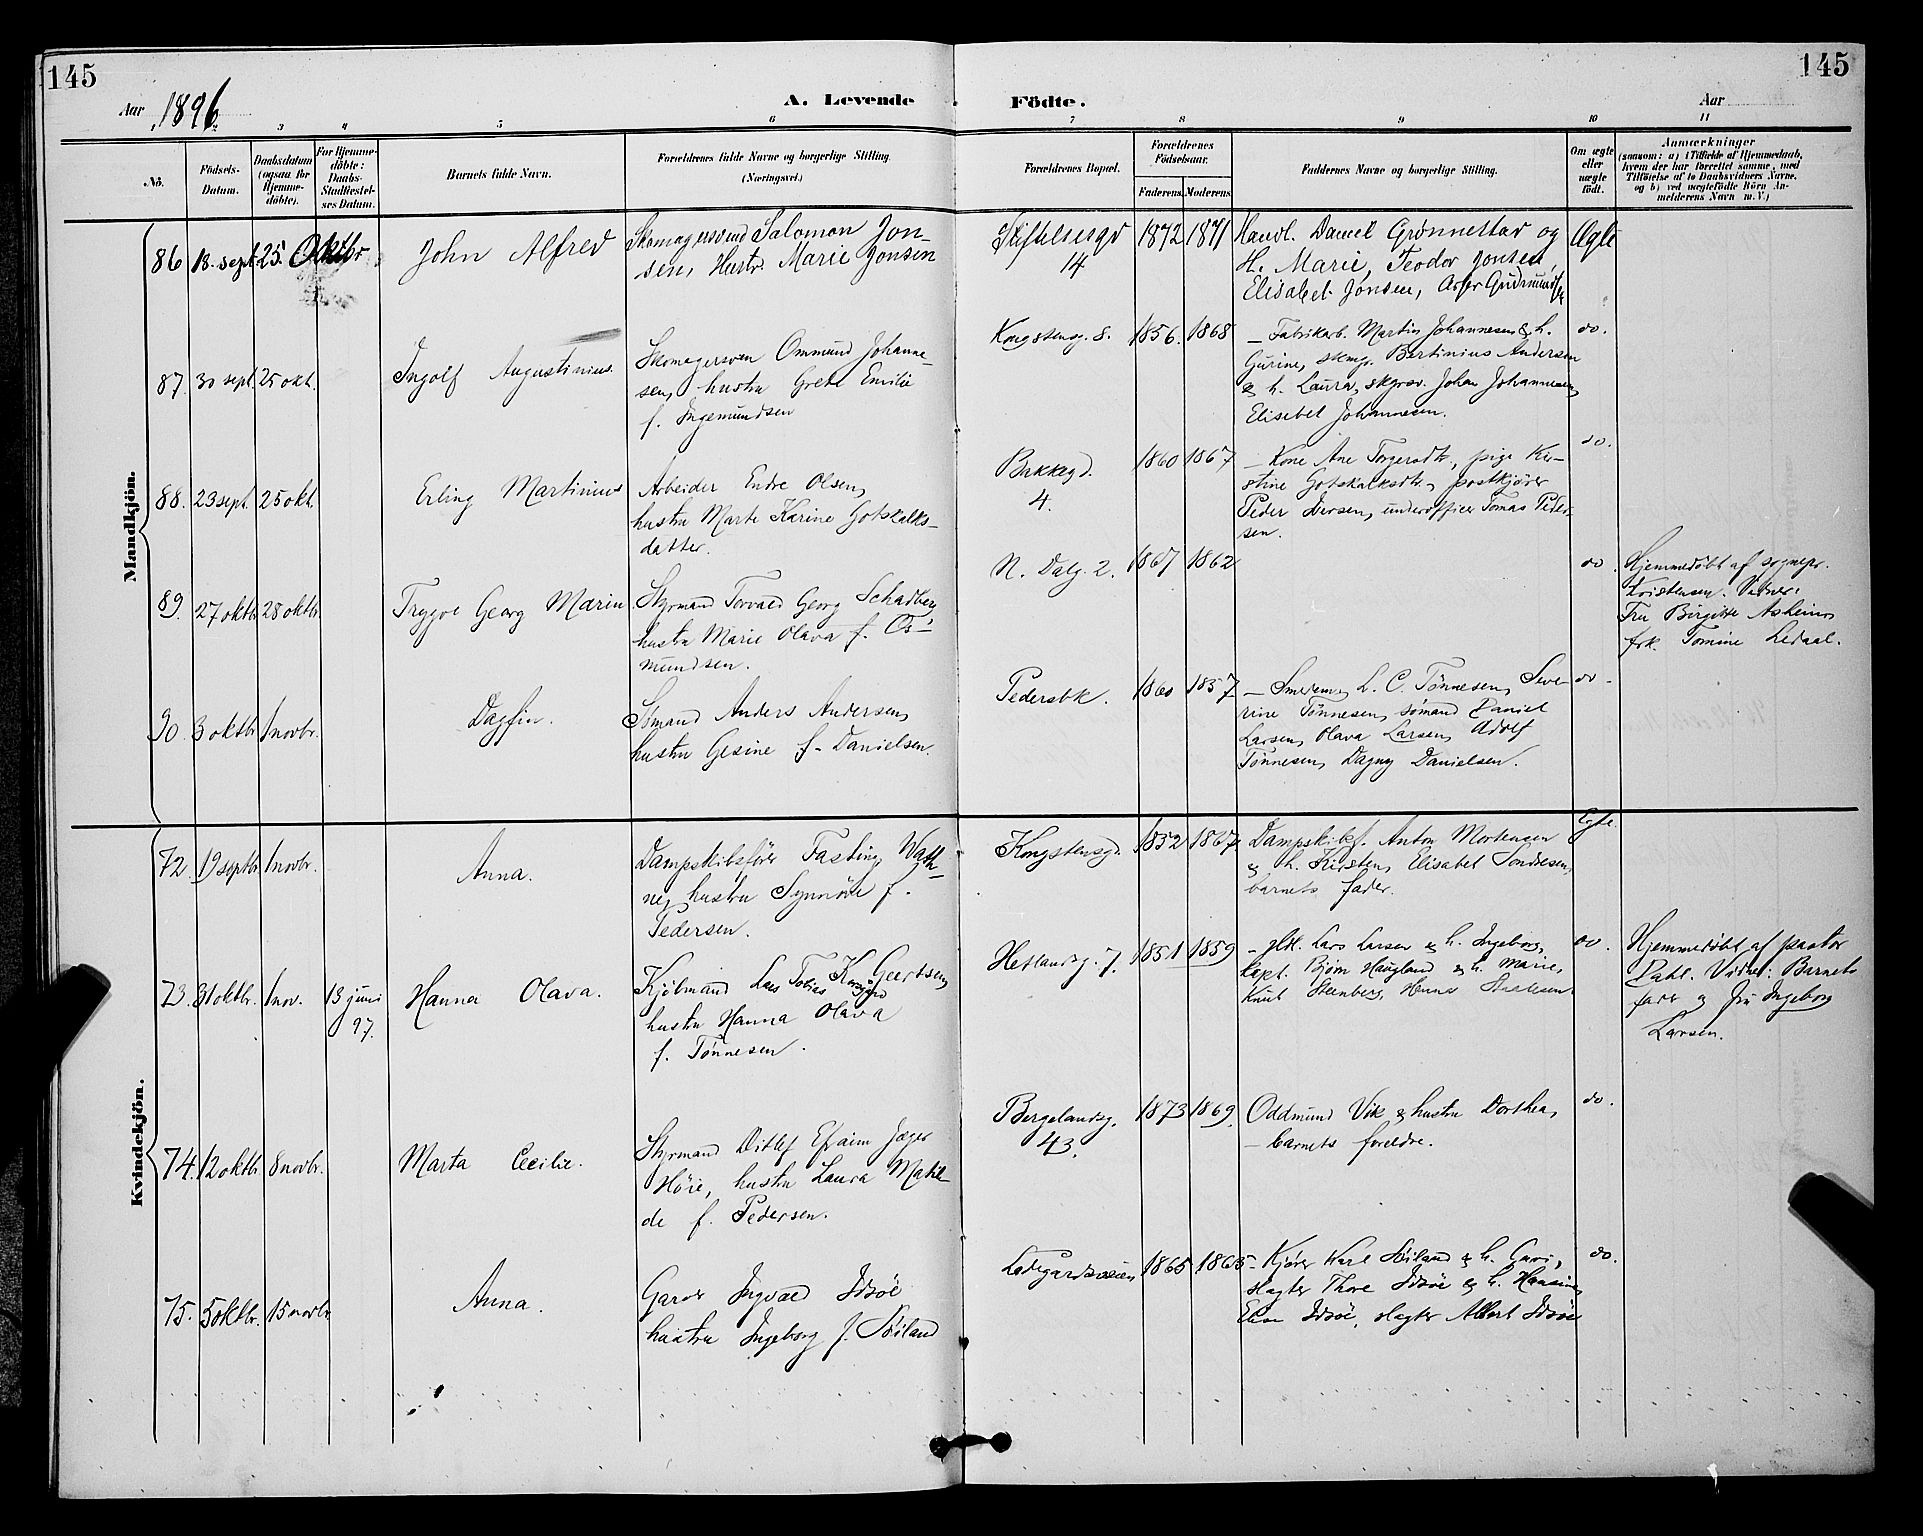 145
145
Aar 1896
A. Levende Födte.
Aar
3 4 5 6 7 8 9 10 11
No.
Födsels-Datum.
Daabsdatum (ogsaa for Hjemme-döbte).
For Hjemme-döbte: Daabs-Stadfæstel-ses Datum.
Barnets fulde Navn.
Forældrenes fulde Navne og borgerlige Stilling. (Næringsvei.)
Forældrenes Bopæl.
Forældrenes Födselsaar.
Faderens. Moderens.
Faddernes Navne og borgerlige Stilling.
Om ægte eller uægte födt.
Anmærkninger
(saasom: a) i Tilfælde af Hjemmedaab,
hvem der har forrettet samme, med
Tilföielse af to Daabsvidners Navne,
og b) ved uægtefödte Börn An-
melderens Navn m. V.)
Mandkjön.
86 18. sept 25. Oktbr John Alfred
Skomagersvend Salomon Jon-
sen, Hustr. Marie Jonsen
Stiftelsesgd
14
1872 1871
Handl. Daniel Grønnestad og
H. Marie, Teodor Jonsen,
Elisabet Jonsen,
Ægte
87. 30 sept. 25 okt. Ingolf Augustinius.
Skomagersven Ommund Johanne-
sen, hustru Grete Emilie
f. Ingemundsen
Kongstensg. 8. 1856. 1868
- Fabrikarb. Martin Johannesen & h.
Gurine, skmg. Bertinius Andersen
& h. Laura, Johan Johannesen,
Elisabet Johannesen.
do.
88. 23 sept. 25 okt. Erling Martinius
Arbeider Endre Olsen,
hustru Marte Karine Gotskalks-
datter.
Bakkegd.
4.
1860 1867
- Kone Ane Torgersdtr, pige Kir-
stine Gotskalksdtr, postkjører
Peder Iversen, underofficer Tomas Peder-
sen.
do.
89. 27 oktbr 28 oktbr. Trygve Georg Marin
Styrmand Torvald Georg Schadberg
hustru Marie Olava f. Os-
mundsen.
N. Dalg. 2. 1867 1862
do.
Hjemmedøbt af sognepr.
Kristensen. Vidner:
Fru Birgitte Asheim,
frk. Tomine Ledaal.
90. 3 oktbr 1 novbr. Dagfin.
Sømand Anders Andersen,
hustru Gesine f. Danielsen.
Pedersbk. 1860 1857
- L. C. Tønnesen, Seve-
rine Tønnesen, sømand Daniel
Larsen, Olava Larsen, Adolf
Tønnesen, Dagny Danielsen.
do.
Kvindekjön.
72. 19 septbr 1 novbr. Anna.
Dampskibsfører Fasting Wath-
ne, hustru Synnøve f.
Pedersen.
Kongstensgd. 1852 1867
Dampskibsf. Anton Mortensen
& h. Kirsten, Elisabet Tendresen,
barnets fader.
Ægte.
73. 31 oktbr. 1 nov. 13 juni
97.
Hanna Olava.
Kjøbmand Lars Tobias Geertsen,
hustru Hanna Olava
f. Tønnesen.
Hetlandsg. 7. 1851 1859
- Lars Larsen & h. Ingeborg,
kapt. Bjørn Haugland & h. Marie,
Knut Steenberg,
do.
Hjemmedøbt af pastor
Dahl. Vidner: Barnets
fader & fru Ingeborg
Larsen.
74. 12 oktbr. 8 novbr. Marta Cecilie.
Styrmand Ditlef Efraim Jæger
Høie, hustru Laura Matil-
de f. Pedersen.
Bergelandsg.
43.
1873 1869.
Oddmund Vik & hustru Dorthea,
- barnets foreldre.
do.
75. 5 oktbr. 15 novbr Anna.
Garver Ingvald Idsøe
hustru Ingeborg f. Søiland
Ladegaardsveien 1865 1863
- Kjører Karl Søiland & h. Guri,
slagter Thore Idsøe & h. Hansine,
Idsøe, slagter Albert Idsøe
do.